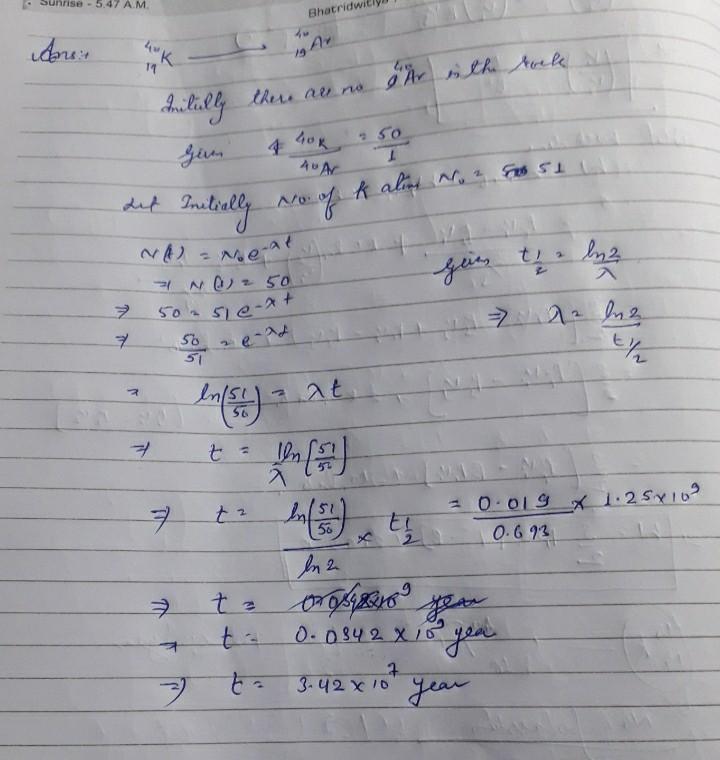 Sunrise - 5.47 A.M.
Bhatridwitiya
Ans:- ⁴⁰₁₉K ⟶ ⁴⁰₁₉Ar
Initially there are no ⁴⁰Ar in the rock
Given ⁴⁰K/⁴⁰Ar = 50/1
Let Initially No. of K atoms N₀ = 51
N(t) = N₀e^-λt
⇒ N(t) = 50
⇒ 50 = 51 e^-λt
⇒ 50/51 = e^-λt
= ln(51/50) = λt
⇒ t = 1/λ ln[51/50]
given t1/2 = ln2/λ
⇒ λ = ln2/t1/2
⇒ t = ln(51/50)/ln2 × t1/2 = 0.019/0.693 × 1.25×10⁹
⇒ t =
⇒ t = 0.0342 × 10⁹ year
⇒ t = 3.42 × 10⁷ year